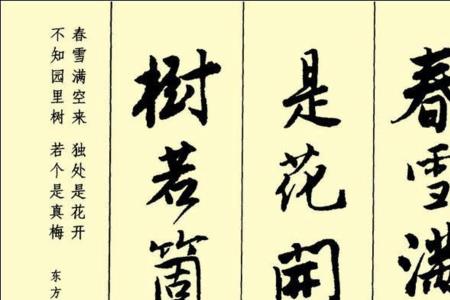 春雪滿
是花開
樹若箇
春雪满空来 独处是花开
不知园里树 若个是真梅
东方